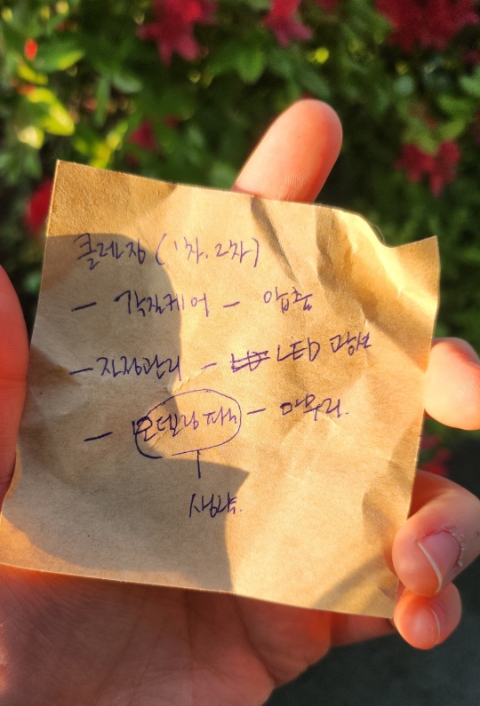 클렌징 (1차. 2차)
- 각질케어 - 압출
- 진정관리 - LED 광선
- 모델링팩 - 마무리.
생략.